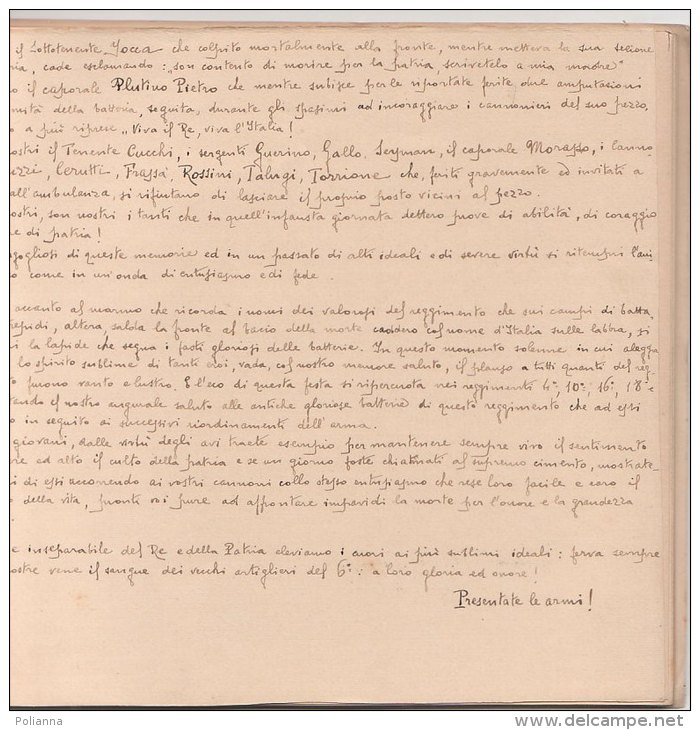 il Sottotenente Jocca che colpito mortalmente alla fronte, mentre metteva la sua sezione
ria, cade esclamando: „son contento di morire per la patria, scrivetelo a mia madre"
o il caporale Plutino Pietro che mentre subisce per le riportate ferite due amputazioni
mità della batteria, seguita, durante gli spasimi ad incoraggiare i cannonieri del suo pezzo,
o a più riprese „Viva il Re, viva l'Italia!
ostri il Tenente Cucchi, i sergenti Guerino, Gallo, Seyman, il caporale Morasso, i canno-
ezzi, Cerutti, Frassà, Rossini, Talugi, Torrione che, feriti gravemente ed invitati a
all'ambulanza, si rifiutano di lasciare il proprio posto vicini al pezzo.
ostri, son nostri i tanti che in quell'infausta giornata dettero prove di abilità, di coraggio
e di patria!
ogogliosi di queste memorie ed in un passato di alti ideali e di severe virtù si ritempri l'ani-
o come in un'onda di entusiasmo e di fede.
accanto al marmo che ricorda i nomi dei valorosi del reggimento che sui campi di batta.
repidi, altera, salda la fronte al bacio della morte caddero col nome d'Italia sulle labbra, si
i la lapide che segna i fasti gloriosi delle batterie. In questo momento solenne in cui aleggia
lo spirito sublime di tanti eroi, vada, col nostro memore saluto, il plauso a tutti quanti del reg-
o furono vanto e lustro. E l'eco di questa festa si ripercuota nei reggimenti 4°, 10°, 16°, 18° e
tando il nostro augurale saluto alle antiche gloriose batterie di questo reggimento che ad essi
o in seguito ai successivi riordinamenti dell'arma.
giovani, dalle virtù degli avi traete esempio per mantenere sempre vivo il sentimento
re ed alto il culto della patria e se un giorno foste chiamati al supremo cimento, mostrate-
i di essi accorrendo ai vostri cannoni collo stesso entusiasmo che rese loro facile e caro il
o della vita, pronti voi pure ad affrontare impavidi la morte per l'onore e la grandezza
.
e inseparabile del Re e della Patria eleviamo i cuori ai più sublimi ideali: ferva sempre
ostre vene il sangue dei vecchi artiglieri del 6°: a loro gloria ed onore!
Presentate le armi!
Polianna
www.delcampe.net